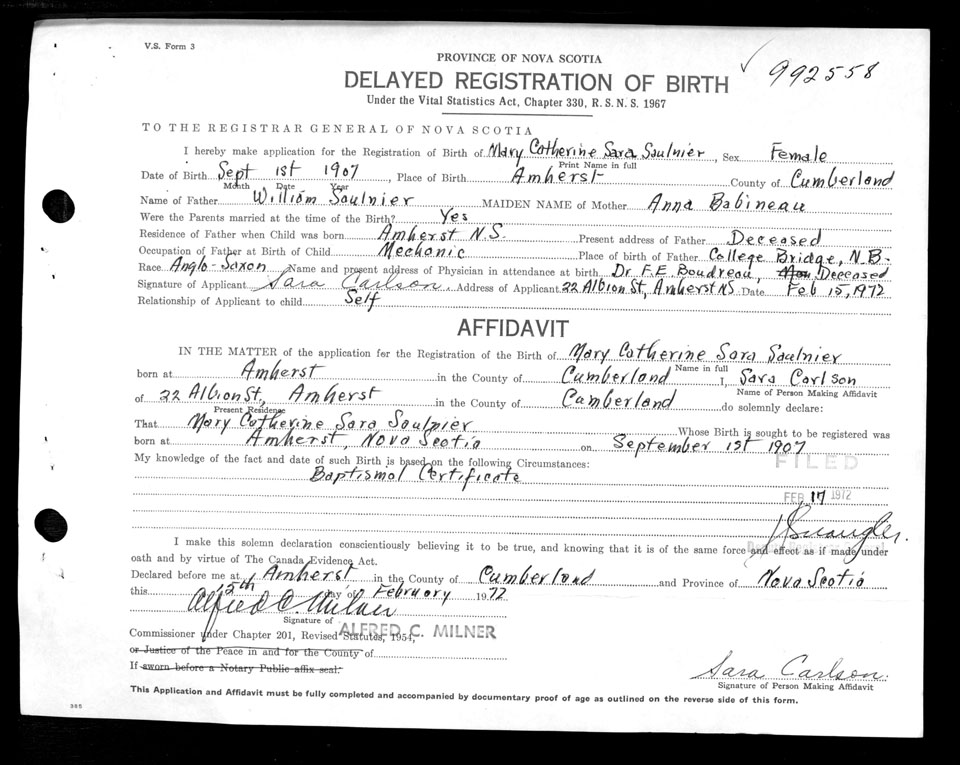 V.S. Form 3
PROVINCE OF NOVA SCOTIA
✓ 992558
DELAYED REGISTRATION OF BIRTH
Under the Vital Statistics Act, Chapter 330, R.S.N.S. 1967
TO THE REGISTRAR GENERAL OF NOVA SCOTIA
I hereby make application for the Registration of Birth of Mary Catherine Sara Saulnier, Sex Female
Print Name in full
Date of Birth Sept 1st 1907, Place of Birth Amherst County of Cumberland
Month Date Year
Name of Father William Saulnier MAIDEN NAME of Mother Anna Babineau
Were the Parents married at the time of the Birth? Yes
Residence of Father when Child was born Amherst N.S. Present address of Father Deceased
Occupation of Father at Birth of Child Mechanic Place of birth of Father College Bridge, N.B.
Race Anglo-Saxon Name and present address of Physician in attendance at birth Dr F.E. Boudreau, Deceased
Signature of Applicant Sara Carlson. Address of Applicant 22 Albion St, Amherst NS Date Feb 15, 1972
Relationship of Applicant to child Self
AFFIDAVIT
IN THE MATTER of the application for the Registration of the Birth of Mary Catherine Sara Saulnier
Name in full
born at Amherst in the County of Cumberland I, Sara Carlson
Name of Person Making Affidavit
of 22 Albion St, Amherst in the County of Cumberland do solemnly declare:
Present Residence
That Mary Catherine Sara Saulnier Whose Birth is sought to be registered was
born at Amherst, Nova Scotia on September 1st 1907
FILED
My knowledge of the fact and date of such Birth is based on the following Circumstances:
Baptismal Certificate
FEB 17 1972
I make this solemn declaration conscientiously believing it to be true, and knowing that it is of the same force and effect as if made under
oath and by virtue of The Canada Evidence Act.
Declared before me at Amherst in the County of Cumberland and Province of Nova Scotia
this 15th day of February 1972
Alfred C. Milner
Signature of
ALFRED C. MILNER
Commissioner under Chapter 201, Revised Statutes, 1954,
or Justice of the Peace in and for the County of
If sworn before a Notary Public affix seal.
Sara Carlson.
Signature of Person Making Affidavit
This Application and Affidavit must be fully completed and accompanied by documentary proof of age as outlined on the reverse side of this form.
385